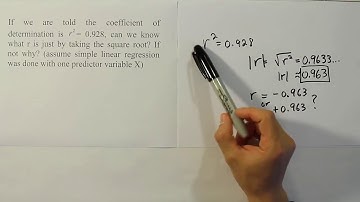 If we are told the coefficient of
determination is r² = 0.928, can we know
what r is just by taking the square root? If
not why? (assume simple linear regression
was done with one predictor variable X)
r² = 0.928
|r| = √r² = 0.9633...
|r| = 0.963
r = -0.963
or
+0.963 ?